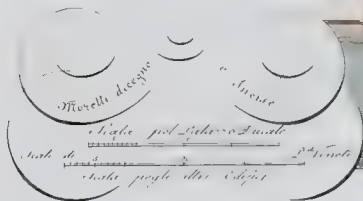 Moretti disegnò e incise
Scala pel Palazzo Ducale
Scala di P.di Veneti
Scala pegli altri Edifizj